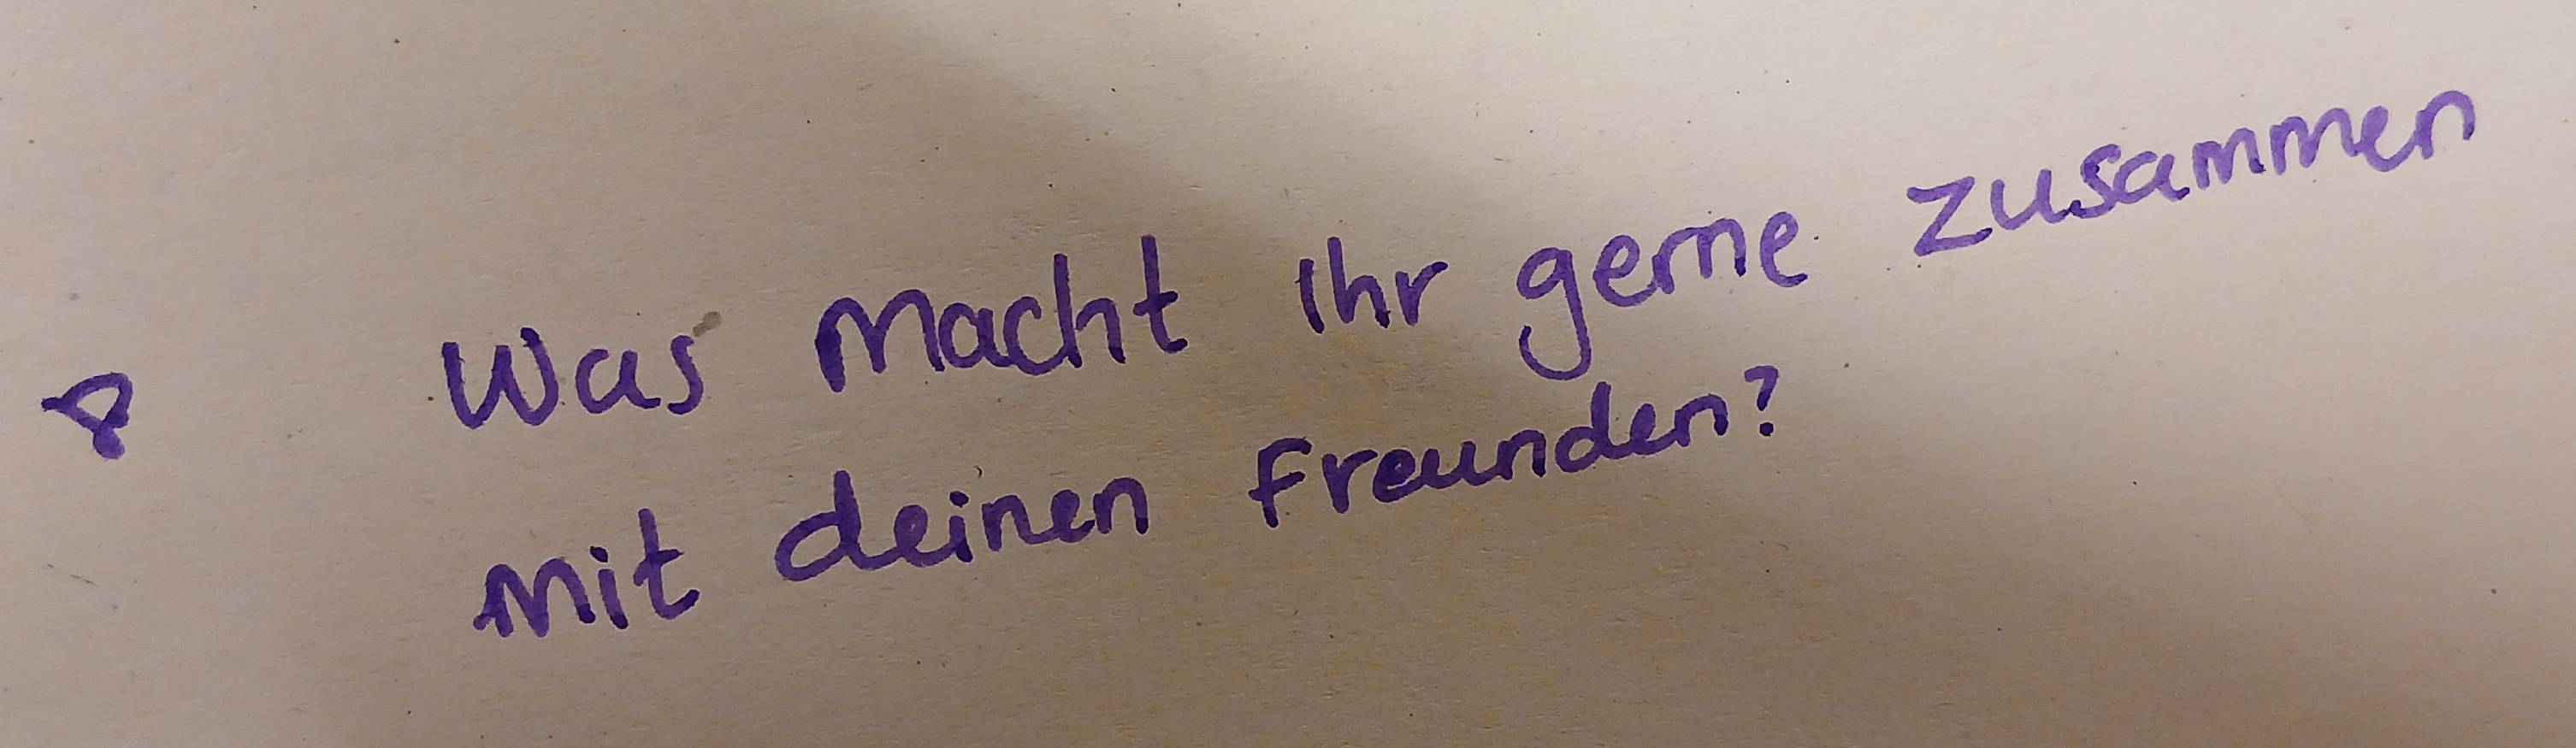 8 Was Macht Ihr gerne zusammen
Mit deinen Freunden?